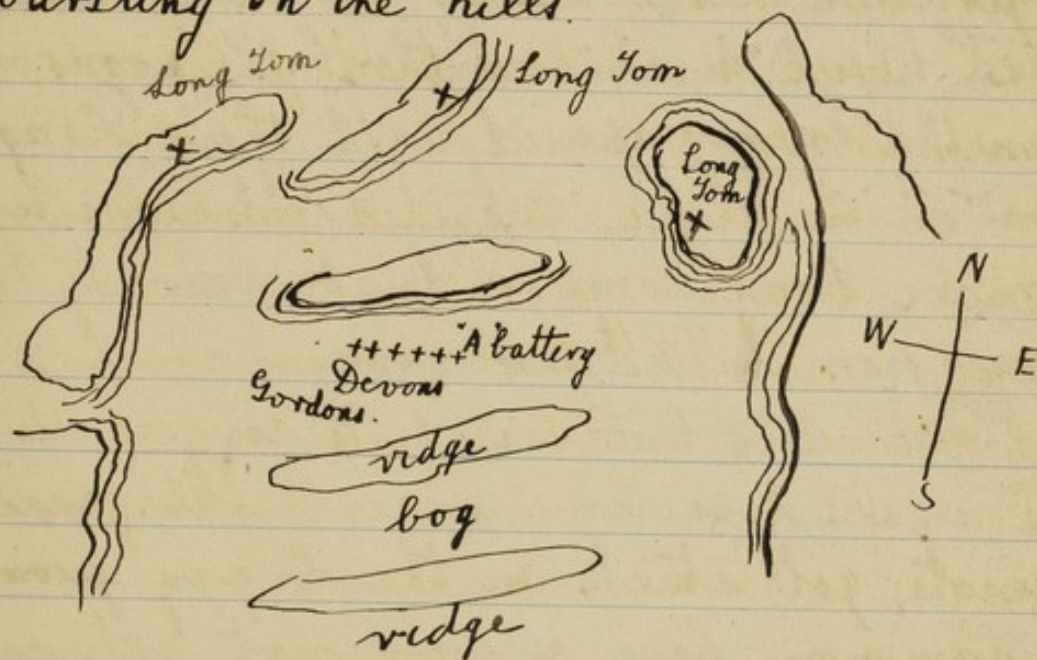 bursting on the hills.
Long Tom
Long Tom
Long
Tom
N
W
E
S
"A" battery
Devons
Gordons.
ridge
bog
ridge